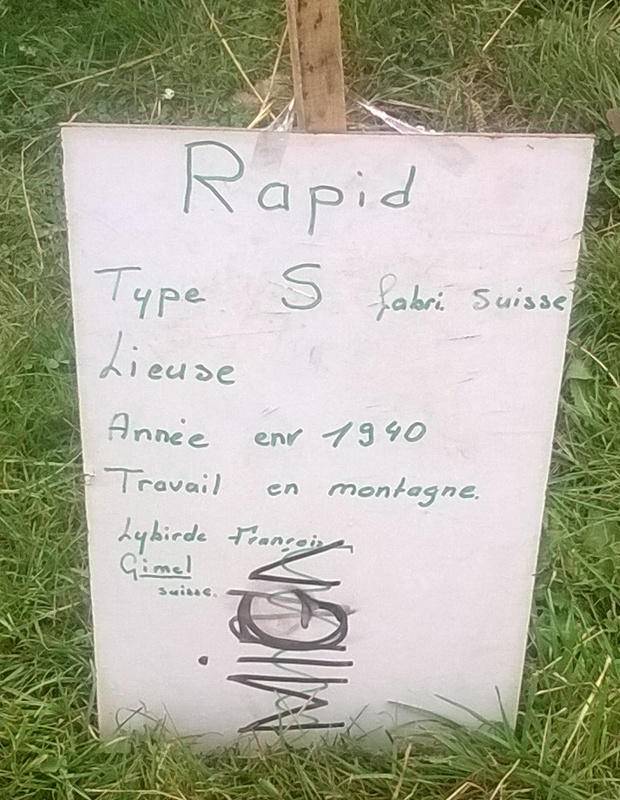 Rapid
Type S fabri. suisse
Lieuse
Année enr 1940
Travail en montagne.
Lybirde François
Gimel
suisse.